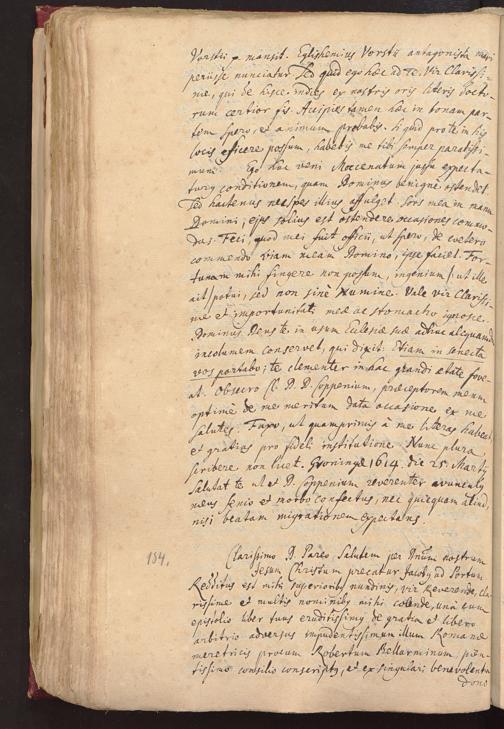 Vorstii p. mansit. Eglishemius Vorstii antagonista
periisse nunciatur. Sed quid ego hæc ad te, Vir Clarissi-
me, qui de hisce indies ex nostris oris literis docto-
rum certior fis. Accipies tamen hæc in bonam par-
tem spero, et animum probabis. Si quid pro te in his
locis efficere possum, habebis me tibi semper paratissi-
mum. Ego huc veni Mœcenatum jussu expecta-
turus conditionem, quam Dominus benigne ostendet
sed hactenus nec spes illius affulget. Sors mea in manu
Domini; ejus solius est ostendere occasiones commo-
das. Feci, quod mei fuit officii, ut spero, de cætero
commendo viam meam Domino, ipse faciet. For-
tunam mihi fingere non possum, ingenium, ut ille
ait, potui, sed non sine Numine. Vale Vir Clarissi-
me et importunitati meæ ac stomacho ignosce.
Dominus Deus te in usum Ecclesiæ suæ adhuc aliquamdiu
incolumem conservet, qui dixit: Etiam in senecta
vos portabo; te clementer in hac grandi ætate fove-
at. Obsecro Cl. D. D. Coppenium, præceptorem meum
optime de me meritum data occasione ex me
salutes. Faxo, ut quamprimis à me literas habeat
et gratias pro fideli institutione. Nunc plura
scribere non licet. Groningæ 1614. die 25 Martij
Salutat te ut et D. Coppenium reverenter avunculus
meus senio et morbo confectus, nec quicquam aliud,
nisi beatam migrationem expectans.
184.
Clarissimo D. Pareo Salutem per Dnum nostrum
Jesum Christum precatur Jacobus ad Portum
Redditus est mihi superioribus nundinis, vir Reverende, Cla-
rissime et multis nominibus mihi colende, unà cum
epistolio liber tuus eruditissimus de gratia et libero
arbitrio adversus impudentissimum illum Romanæ
meretricis procum Robertum Bellarminum,
consilio conscriptus, et ex singulari benevolentia
dono